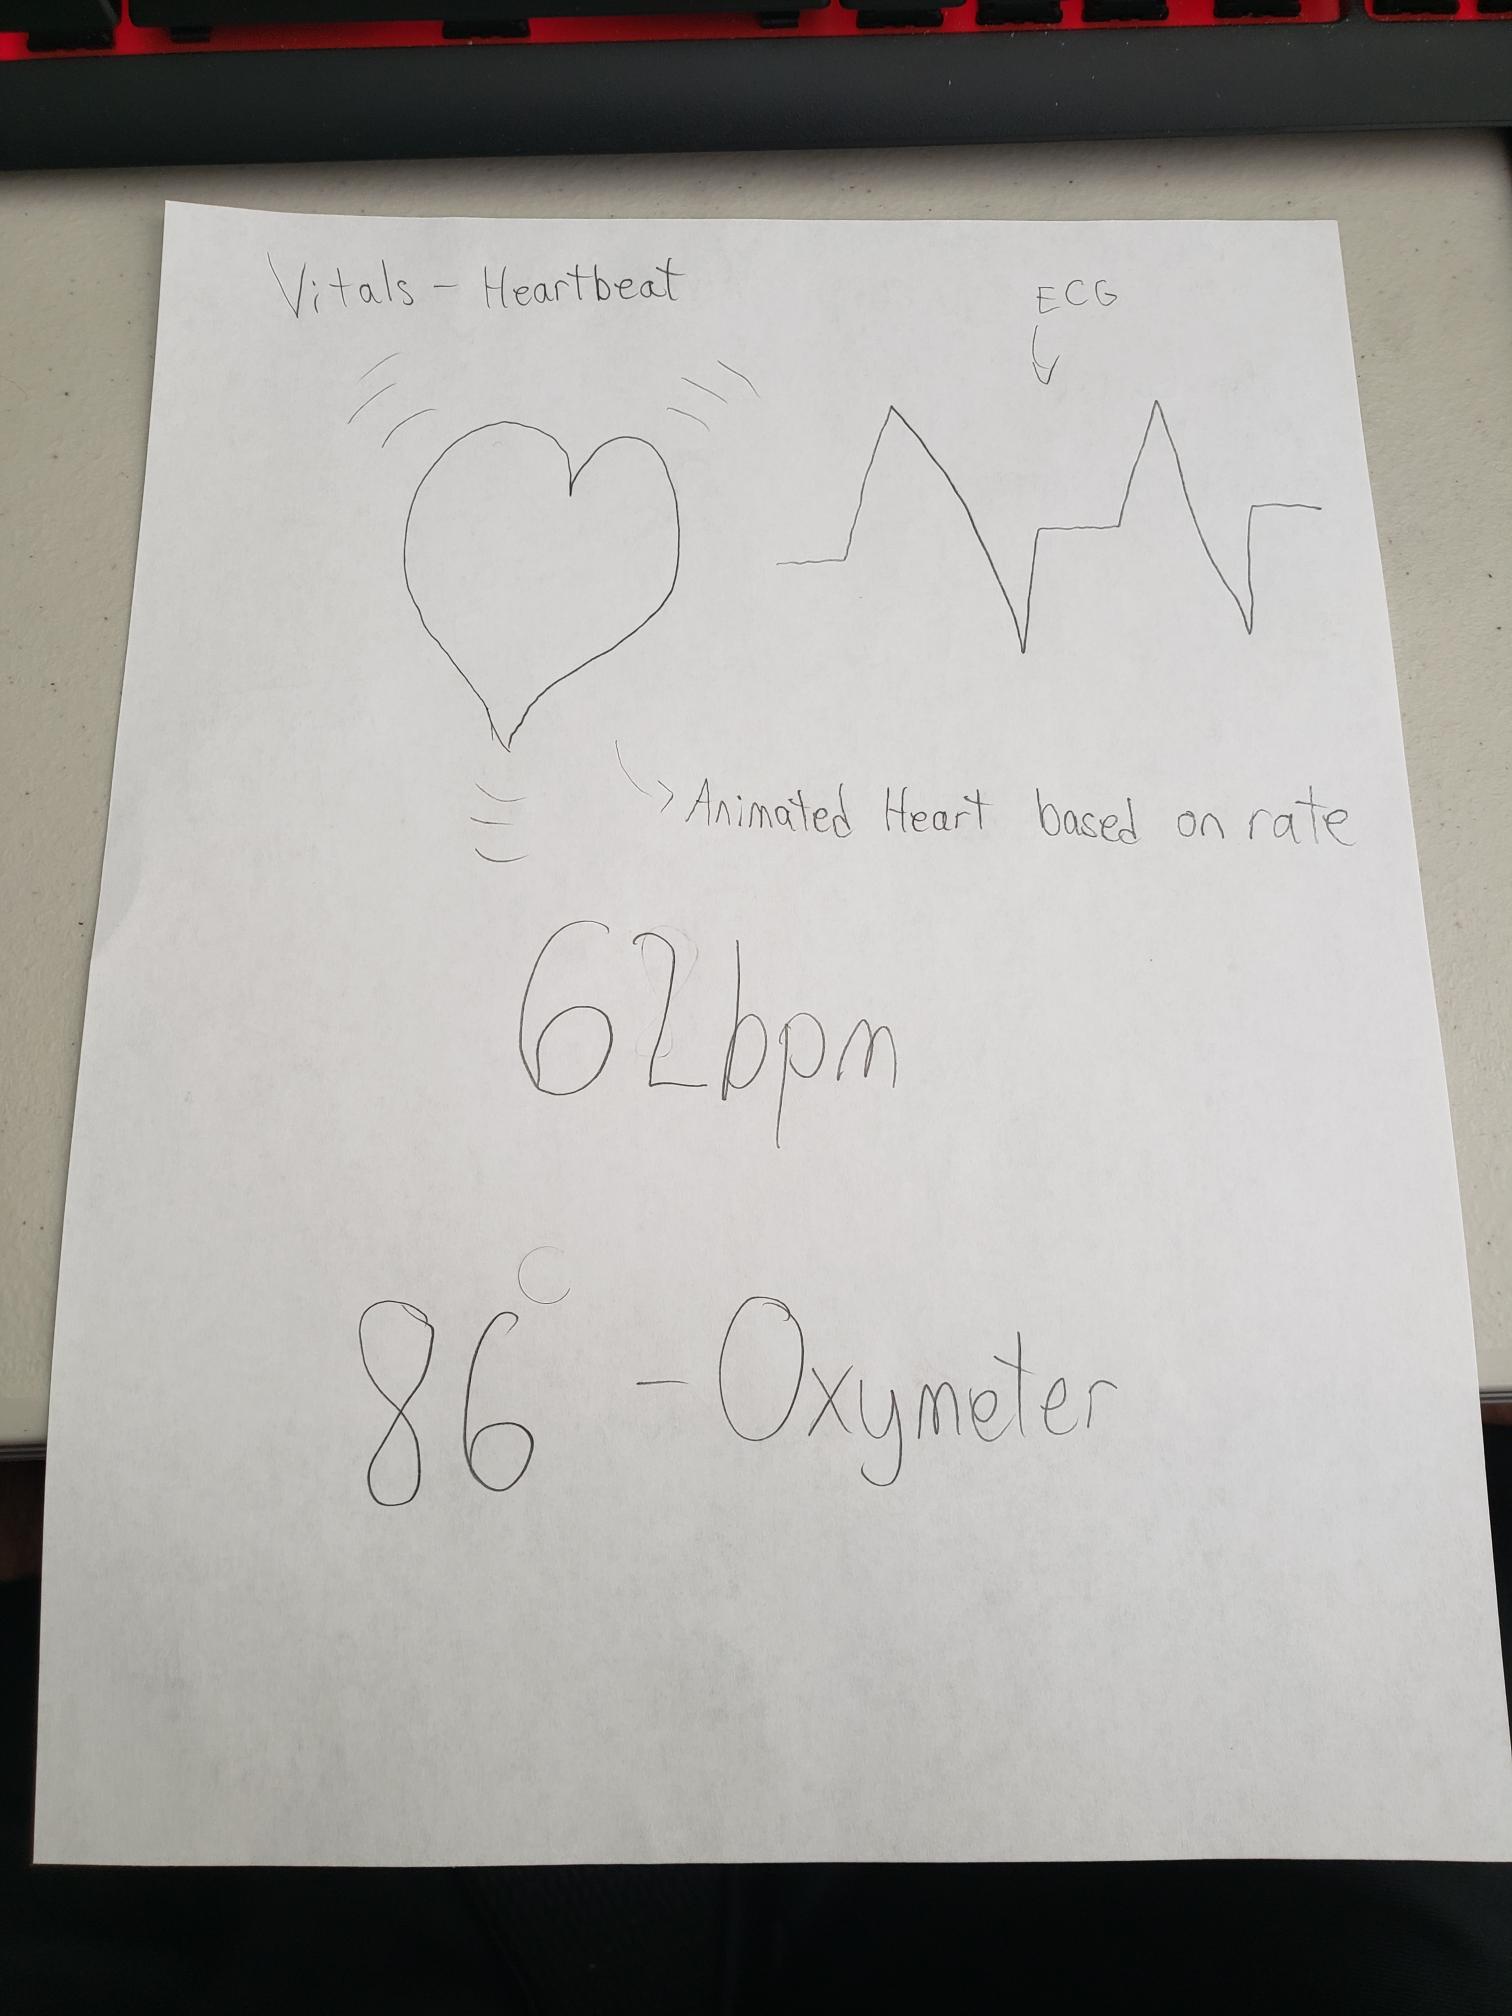 Vitals - Heartbeat
ECG
Animated Heart based on rate
62bpm
86 - Oxymeter